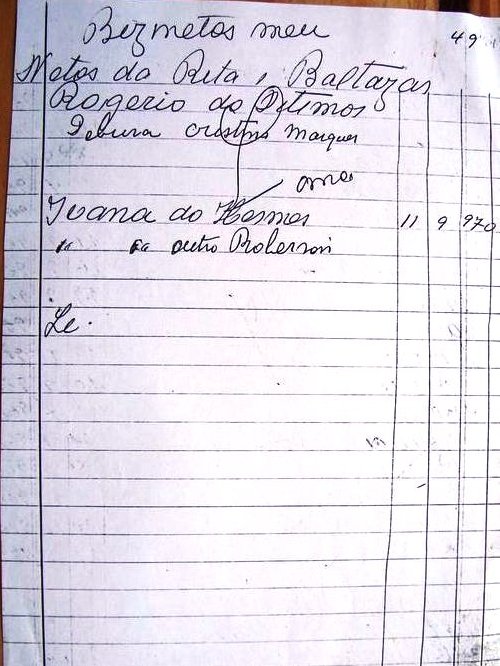 Bizmetos meu 49
Netos da Rita, Baltazar
Rogerio do Ditimos
Debura cristina Marques
ome
Ivana do Hermes 11 9 970
" " outro Roberson
Le.